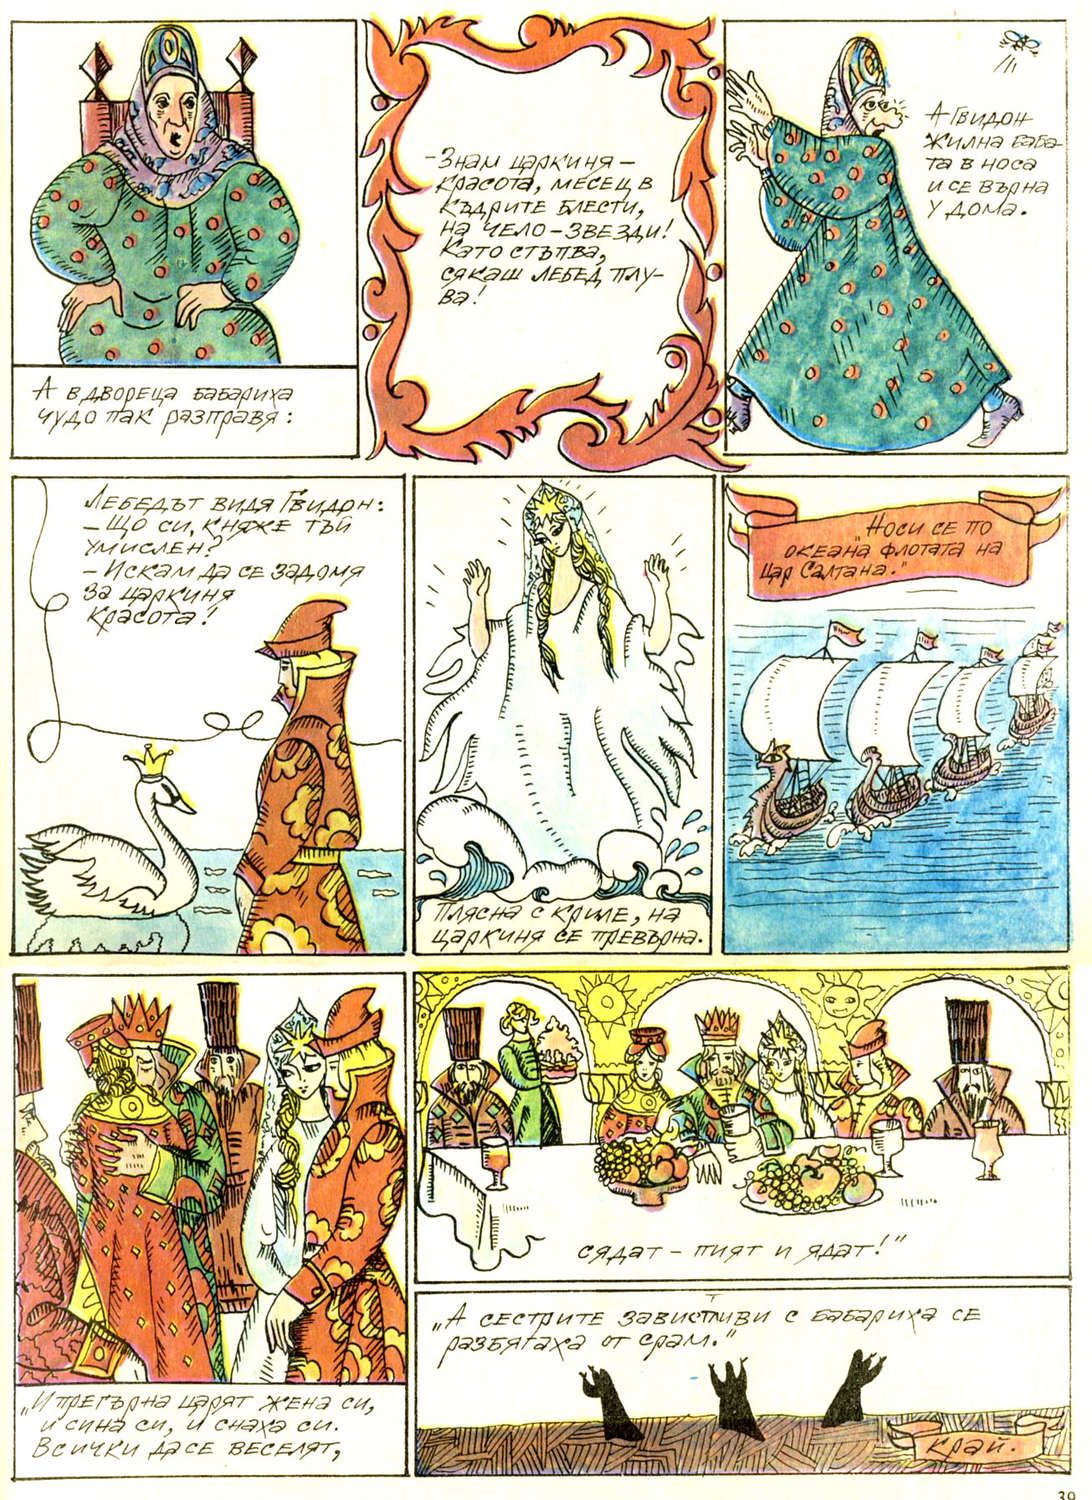 А в двореца бабариха
чудо пак разправя:
- Знам царкиня -
красота, месец в
къдрите блести,
на чело - звезди!
Като стъпва,
сякаш лебед плу-
ва!
А Гвидон
жилна баба-
та в носа
и се върна
у дома.
Лебедът видя Гвидон:
- Що си, княже тъй
умислен?
- Искам да се задомя
за царкиня
красота!
Плясна с криле, на
царкиня се превърна.
"Носи се по
океана флотата на
цар Салтана."
"И прегърна царят жена си,
и сина си, и снаха си.
Всички да се веселят,
сядат - пият и ядат!"
"А сестрите завистливи с бабариха се
разбягаха от срам."
Край.
39